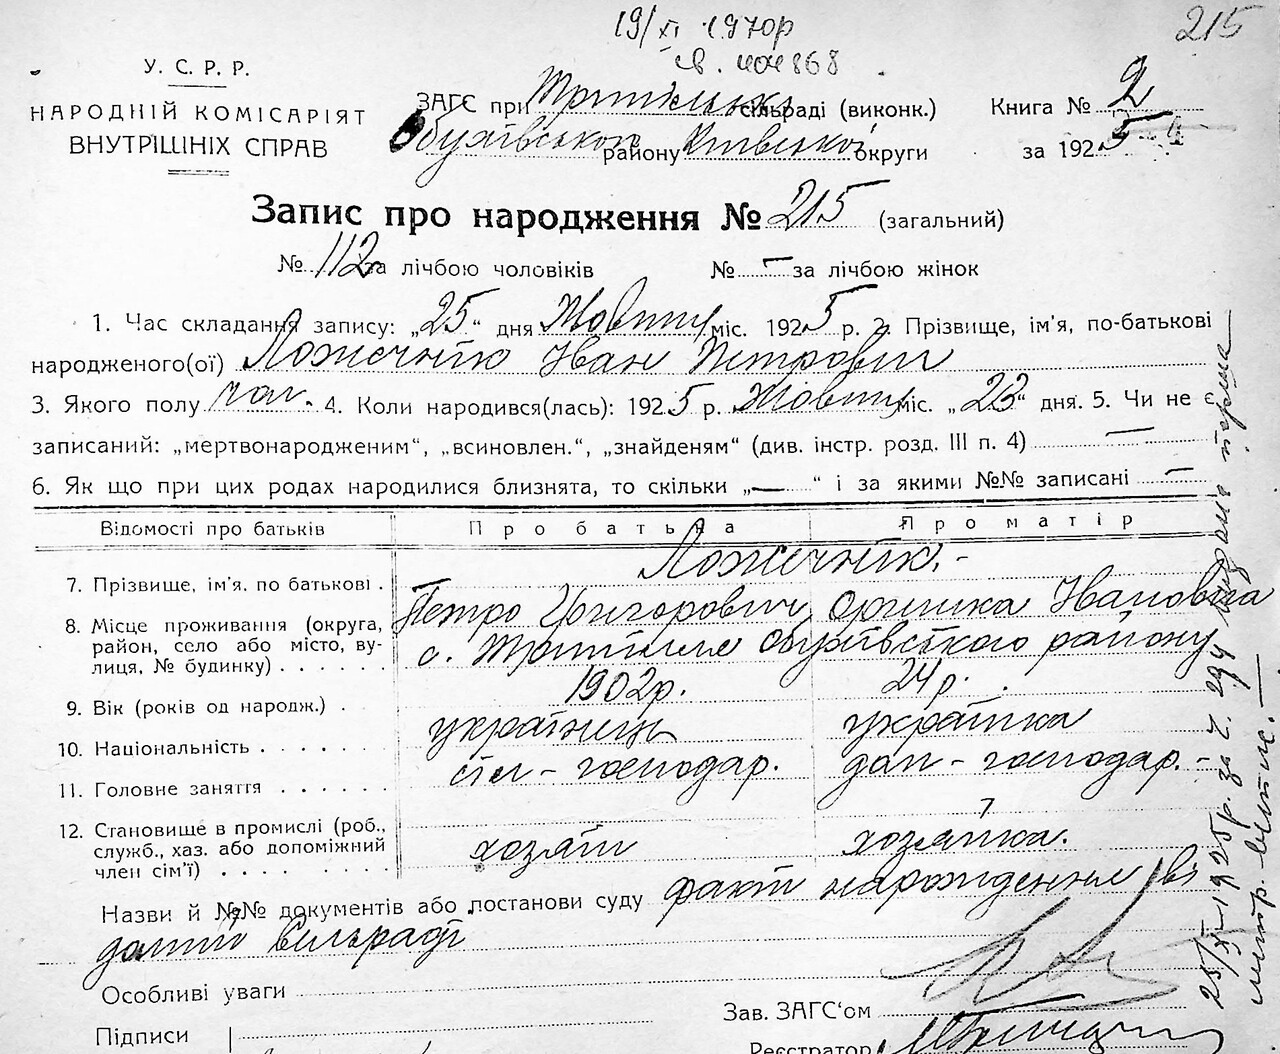 19/XI 1970р
св. 404868
215
У. С. Р. Р.
НАРОДНІЙ КОМІСАРІЯТ
ВНУТРІШНІХ СПРАВ
ЗАГС при сільраді (виконк.)
Обухівського району Київської округи
Книга № 2
за 1925
Запис про народження № 215 (загальний)
№ 112 за лічбою чоловіків № – за лічбою жінок
1. Час складання запису: „25“ дня Жовтня міс. 1925 р. 2. Прізвище, ім'я, по-батькові
народженого(ої) Ложечнік Іван Петрович
3. Якого полу чол. 4. Коли народився(лась): 1925 р. Жовтня міс. „23“ дня. 5. Чи не є
записаний: „мертвонародженим“, „всиновлен.“, „знайденям“ (див. інстр. розд. III п. 4) —
6. Як що при цих родах народилися близнята, то скільки „—“ і за якими №№ записані —
Відомості про батьків Про батька Про матір
7. Прізвище, ім'я, по батькові . Ложечнік. -
Петро Григорович Оришка Івановна
8. Місце проживання (округа, район, село або місто, вулиця, № будинку) . . . . . . с. Обухівського району
9. Вік (років од народж.) . 1902р. 24 р.
10. Національність . . . . . . українець українка
11. Головне заняття . . . . . . сіл - господар. дом - господар. -
12. Становище в промислі (роб., служб., хаз. або допоміжний член сім'ї) . . . . . . . хозяїн хозяйка.
Назви й №№ документів або постанови суду факт народження
Сільраді
Особливі уваги
Підписи
Зав. ЗАГС'ом
Реєстратор